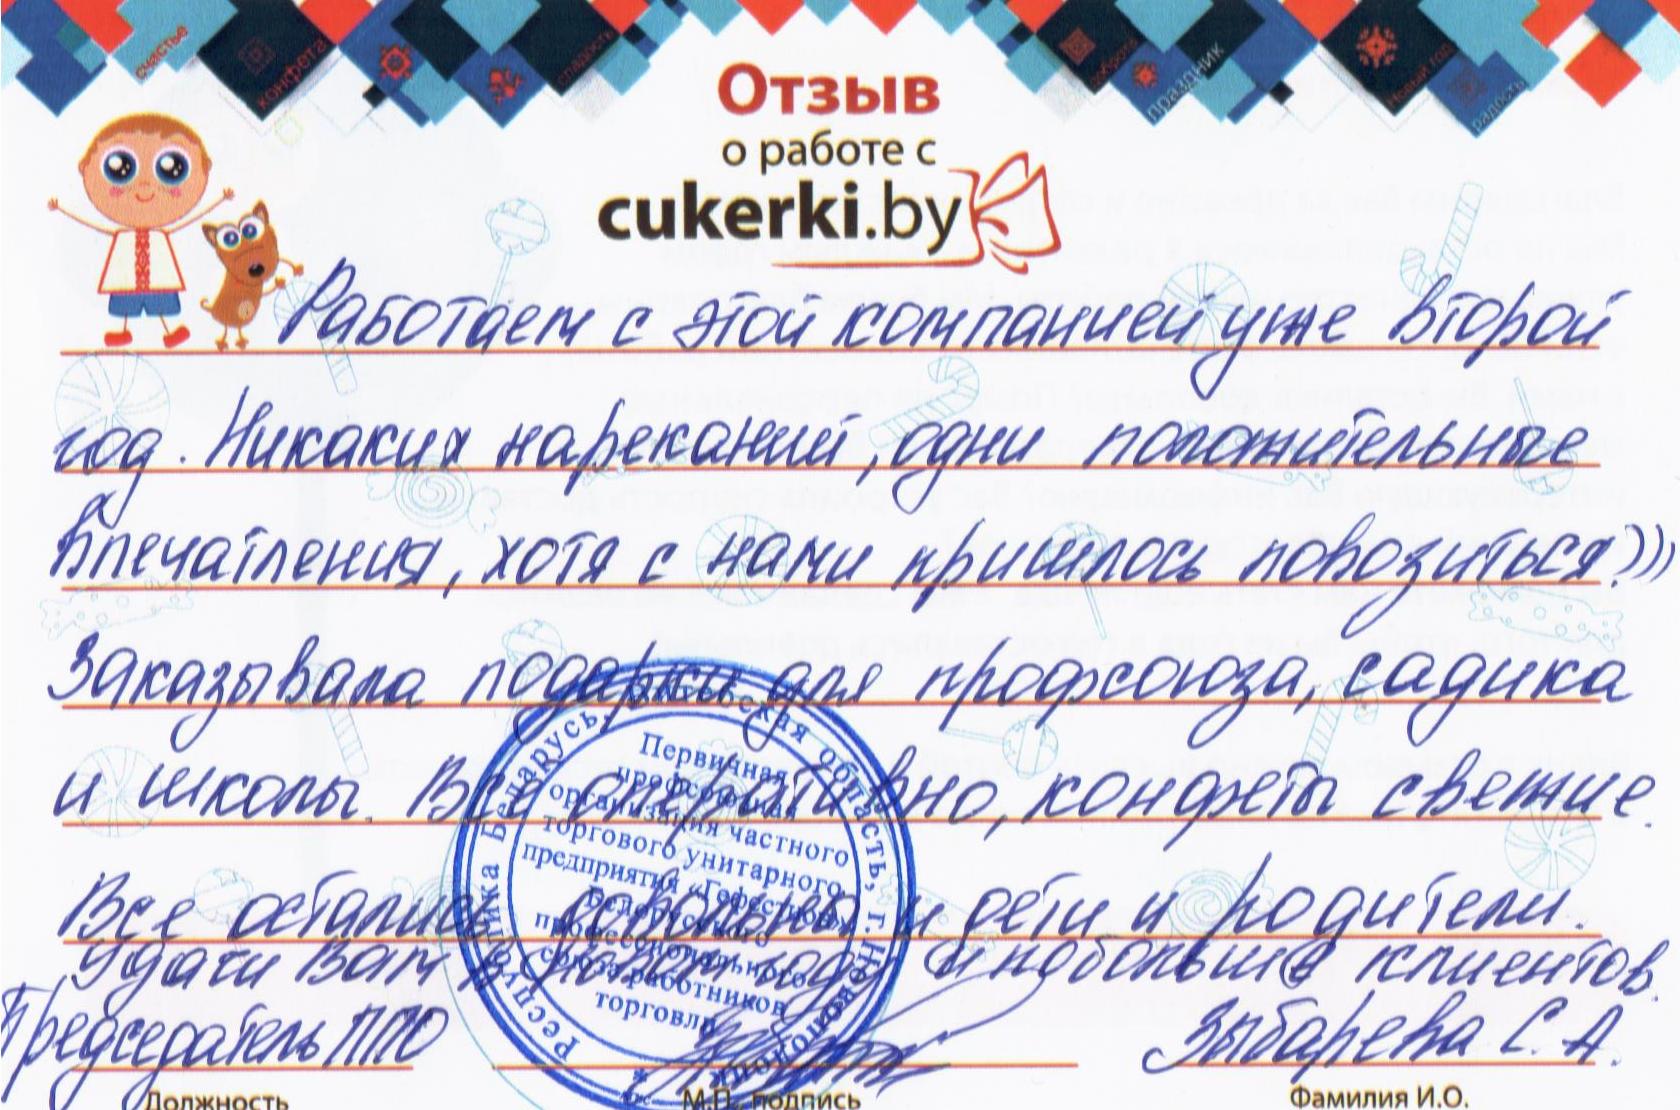 счастье
конфета
сладость
доброта
праздник
Новый год
радость
Отзыв
о работе с
cukerki.by
Работаем с этой компанией уже второй
год. Никаких нареканий, одни положительные
впечатления, хотя с нами пришлось повозиться?)))
Заказывала подарки для профсоюза, садика
и школы. Всё оперативно, конфеты свежие.
Все остались довольны и дети и родители.
Удачи Вам в новом году и побольше клиентов.
Председатель ППО
Зыбарева С. А.
Республика Беларусь, Витебская область, г. Новополоцк
Первичная
профсоюзная
организация частного
торгового унитарного
предприятия
Белорусского
профессионального
союза работников
торговли
Должность
М.П., подпись
Фамилия И.О.